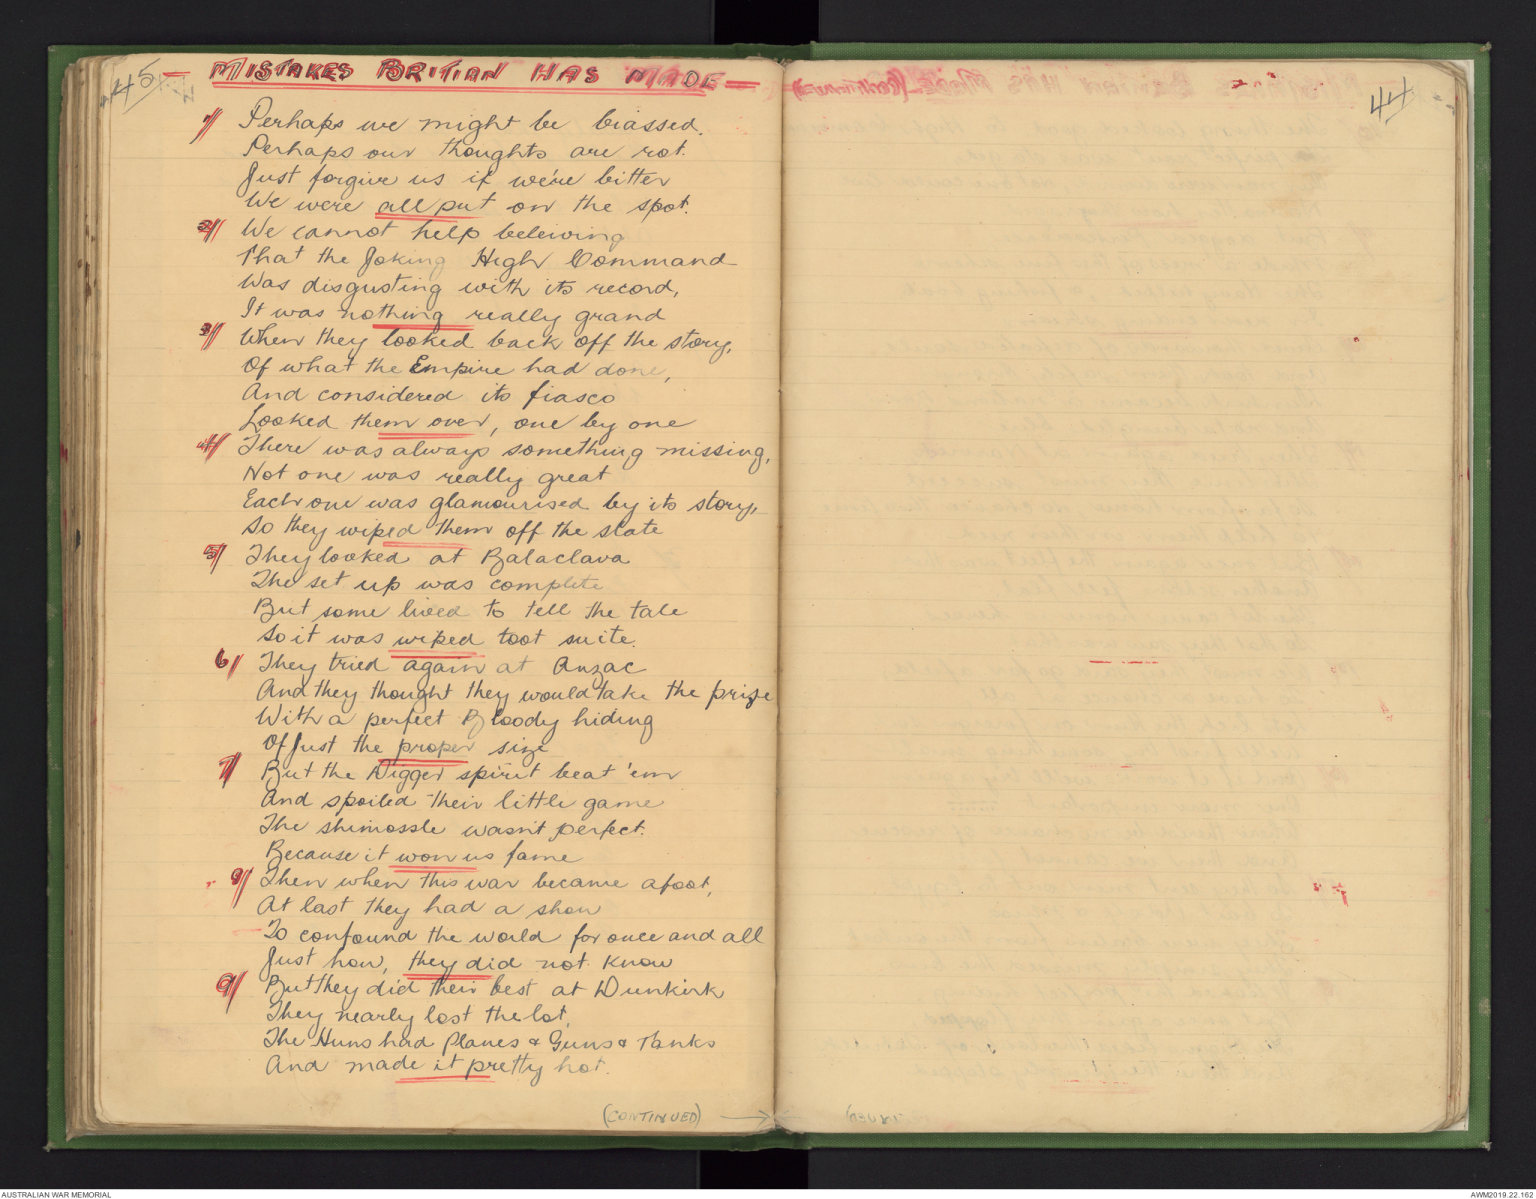 45
— MISTAKES BRITIAN HAS MADE —
1// Perhaps we might be biassed.
Perhaps our thoughts are rot.
Just forgive us if we're bitter
We were all put on the spot.
2// We cannot help beleiving
That the Joking High Command
Was disgusting with its record,
It was nothing really grand
3// When they looked back off the story,
Of what the Empire had done,
And considered its fiasco
Looked them over, one by one
4// There was always something missing,
Not one was really great
Each one was glamourised by its story,
So they wiped them off the slate
5// They looked at Balaclava
The set up was complete
But some lived to tell the tale
So it was wiped toot suite.
6// They tried again at Anzac
And they thought they would take the prize
With a perfect Bloody hiding
Of Just the proper size
7// But the Digger spirit beat 'em
And spoiled their little game
The shimossle wasn't perfect.
Because it won us fame
8// Then when this war became afoot,
At last they had a show
To confound the world for once and all
Just how, they did not know
9// But they did their best at Dunkirk
They nearly lost the lot,
The Huns had Planes & Guns & Tanks
And made it pretty hot.
(CONTINUED) →
44
AUSTRALIAN WAR MEMORIAL
AWM2019.22.162